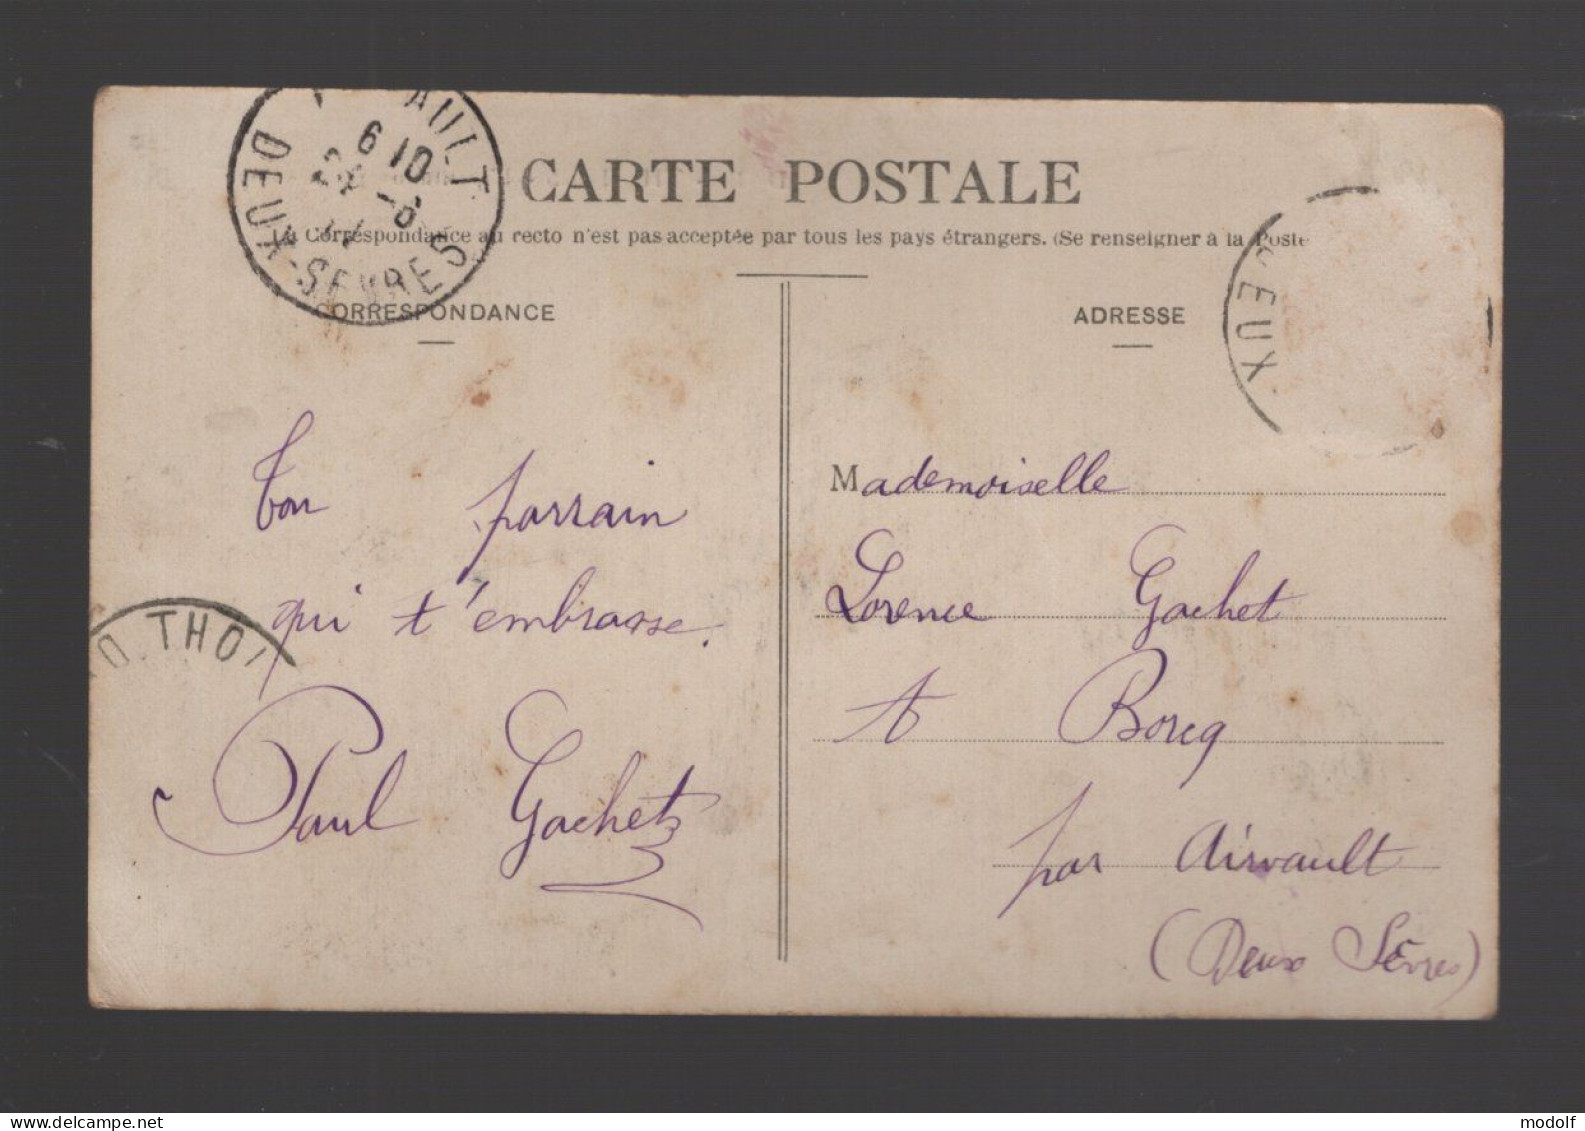 AULT
6 10
DEUX-SEVRES
CARTE POSTALE
La Correspondance au recto n'est pas acceptée par tous les pays étrangers. (Se renseigner à la Poste
CORRESPONDANCE
ADRESSE
EUX
Ton parrain
qui t'embrasse.
Paul Gachet
THOU
Mademoiselle
Lorence Gachet
A Borcq
par Airvault
(Deux Sèvres)
www.delcampe.net
modolf